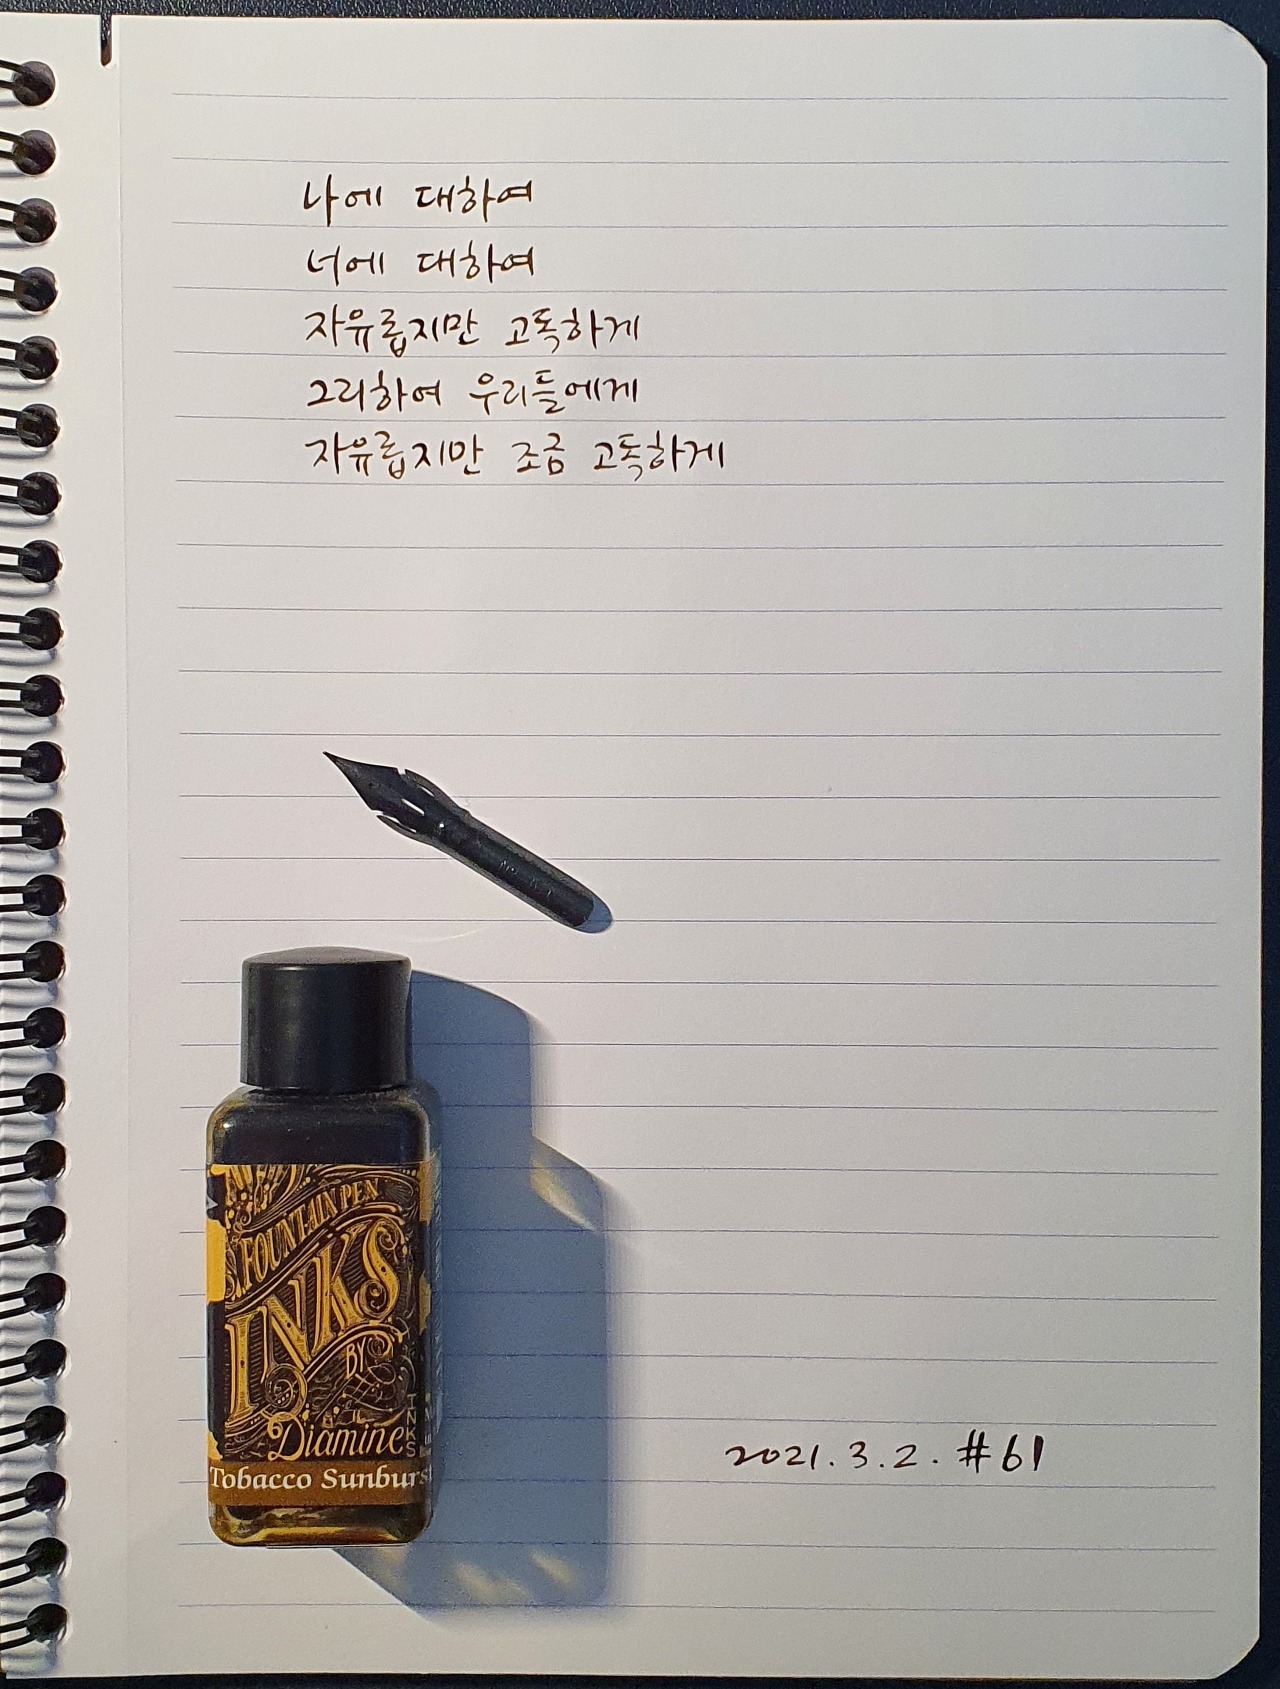 나에 대하여
너에 대하여
자유롭지만 고독하게
그리하여 우리들에게
자유롭지만 조금 고독하게
FOUNTAIN PEN
INKS
BY
Diamine
INKS
Tobacco Sunburst
2021.3.2. #61